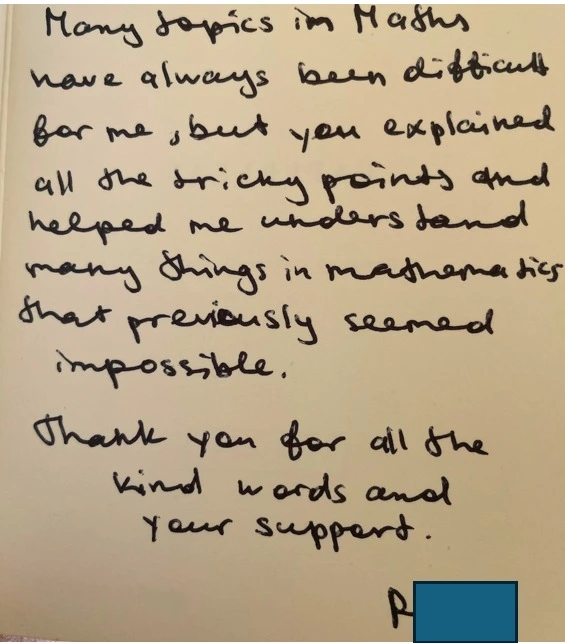 Many topics in Maths
have always been difficult
for me, but you explained
all the tricky points and
helped me understand
many things in mathematics
that previously seemed
impossible.
Thank you for all the
kind words and
your support.
R